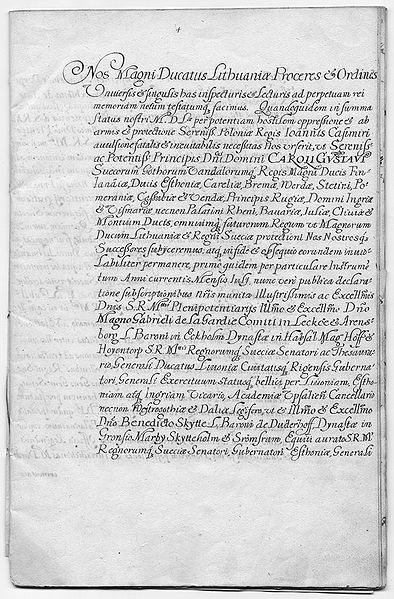 Nos Magni Ducatus Lithuaniæ Proceres & Ordines
Universis & singulis has inspecturis & Lecturis ad perpetuam rei
memoriam notum testatumq, facimus. Quandoquidem in summa
status nostri M. D. L. per potentiam hostilem oppressione & ab
armis & protectione Sereniss. Poloniæ Regis Ioannis Casimiri
avulsione fatalis & inevitabilis necessitas Nos urserit, ut Sereniss.
ac Potentiss. Principis Dni Domini CAROLI GUSTAVI
Suecorum Gothorum Vandalorumq, Regis Magni Ducis Fin-
landiæ, Ducis Esthoniæ, Careliæ, Bremæ, Werdæ, Stetini, Po-
meraniæ, Cassubiæ & Vendæ, Principis Rugiæ, Domini Ingriæ
& Vismariæ necnon Palatini Rheni, Bavariæ, Iuliæ, Cliviæ &
Montium Ducis, omniumq, futurorum Regum ut Magnorum
Ducum Lithuaniæ & Regni Sueciæ protectioni Nos Nostrosq,
Successores subyceremus, atq, in fide & obsequio eorundem invio-
labiliter permanere, primo quidem per particulare Instrumen
tum Anni currentis, Mensis Iuly, nunc vero publica declara-
tione subscriptionibus nris munita Illustrissimis ac Excellmis
Dnis S. R. Mtis Plenipotentiarys Illmo & Excellmo Dno
Magno Gabrieli de la Gardie Comiti in Leckoe & Arens-
borg L. Baroni in Eckholm Dynastæ in Habsal Mag: Hoff &
Hoyentorp S. R. Mtis Regnorumq, Sueciæ Senatori ac Thesaura-
rio, Generali Ducatus Livoniæ Civitatisq, Rigensis Guberna-
tori, Generali Exercituum statusq, bellici per Livoniam, Estho-
niam atq, Ingriam Vicario, Academiæ Upsalien: Cancellario
necnon Westrogothiæ & Daliæ Legifero, ut & Illmo & Excellmo
Dno Benedicto Skytte L. Baroni de Duderhoff, Dynastæ in
Gronsio Marby Skytteholm & Strömsram, Equiti aurato S. R. Mtis
Regnorumq, Sueciæ Senatori, Gubernatori Esthoniæ, Generali